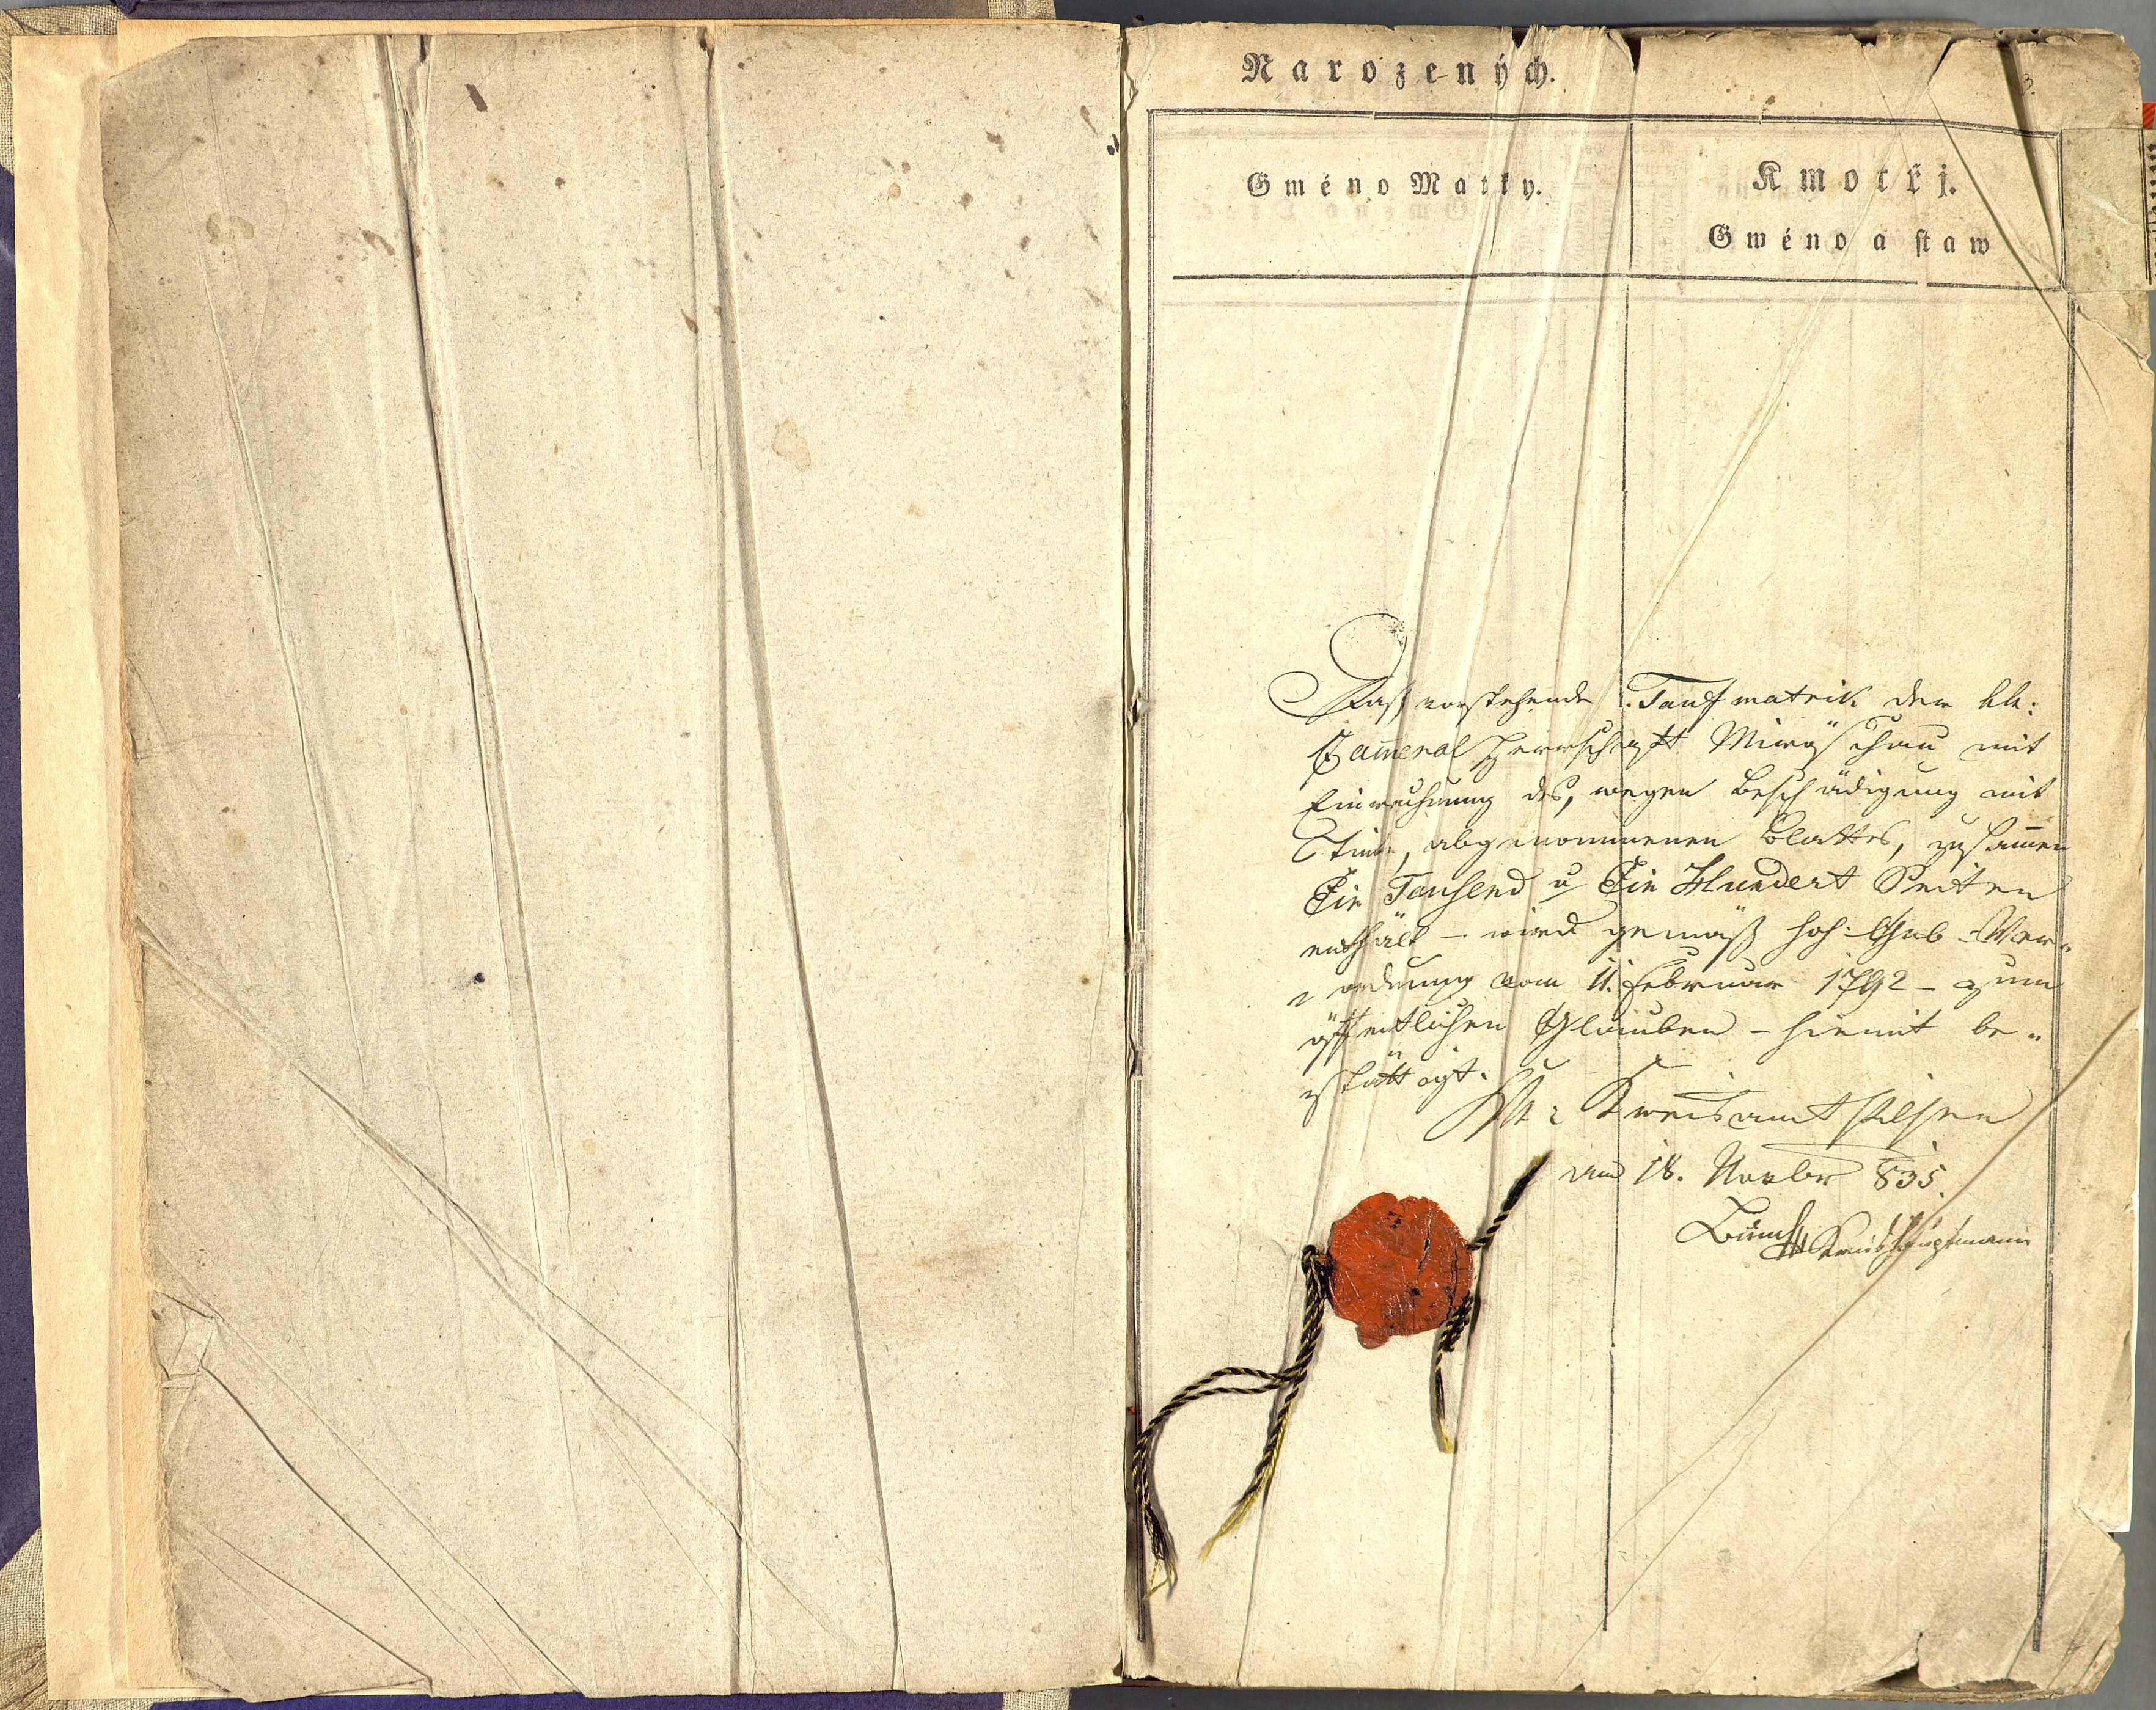 Narozených.
Gméno Matky.
Kmotřj.
Gméno a staw
Daß vorstehende Taufmatrik der kk:
Kameral Herrschaft Miröschau mit
Einrechnung des, wegen Beschädigung mit
Tinte, abgenommenen Blattes, zusammen
Ein Tausend u Ein Hundert Seiten
enthält – wird gemäß hoh: Gub. Ver-
ordnung vom 11. Februar 1792 – zum
öffentlichen Glauben – hiemit be-
stättigt.
KK: Kreisamt Pilsen
am 18. Novbr 835.
Kreishauptmann